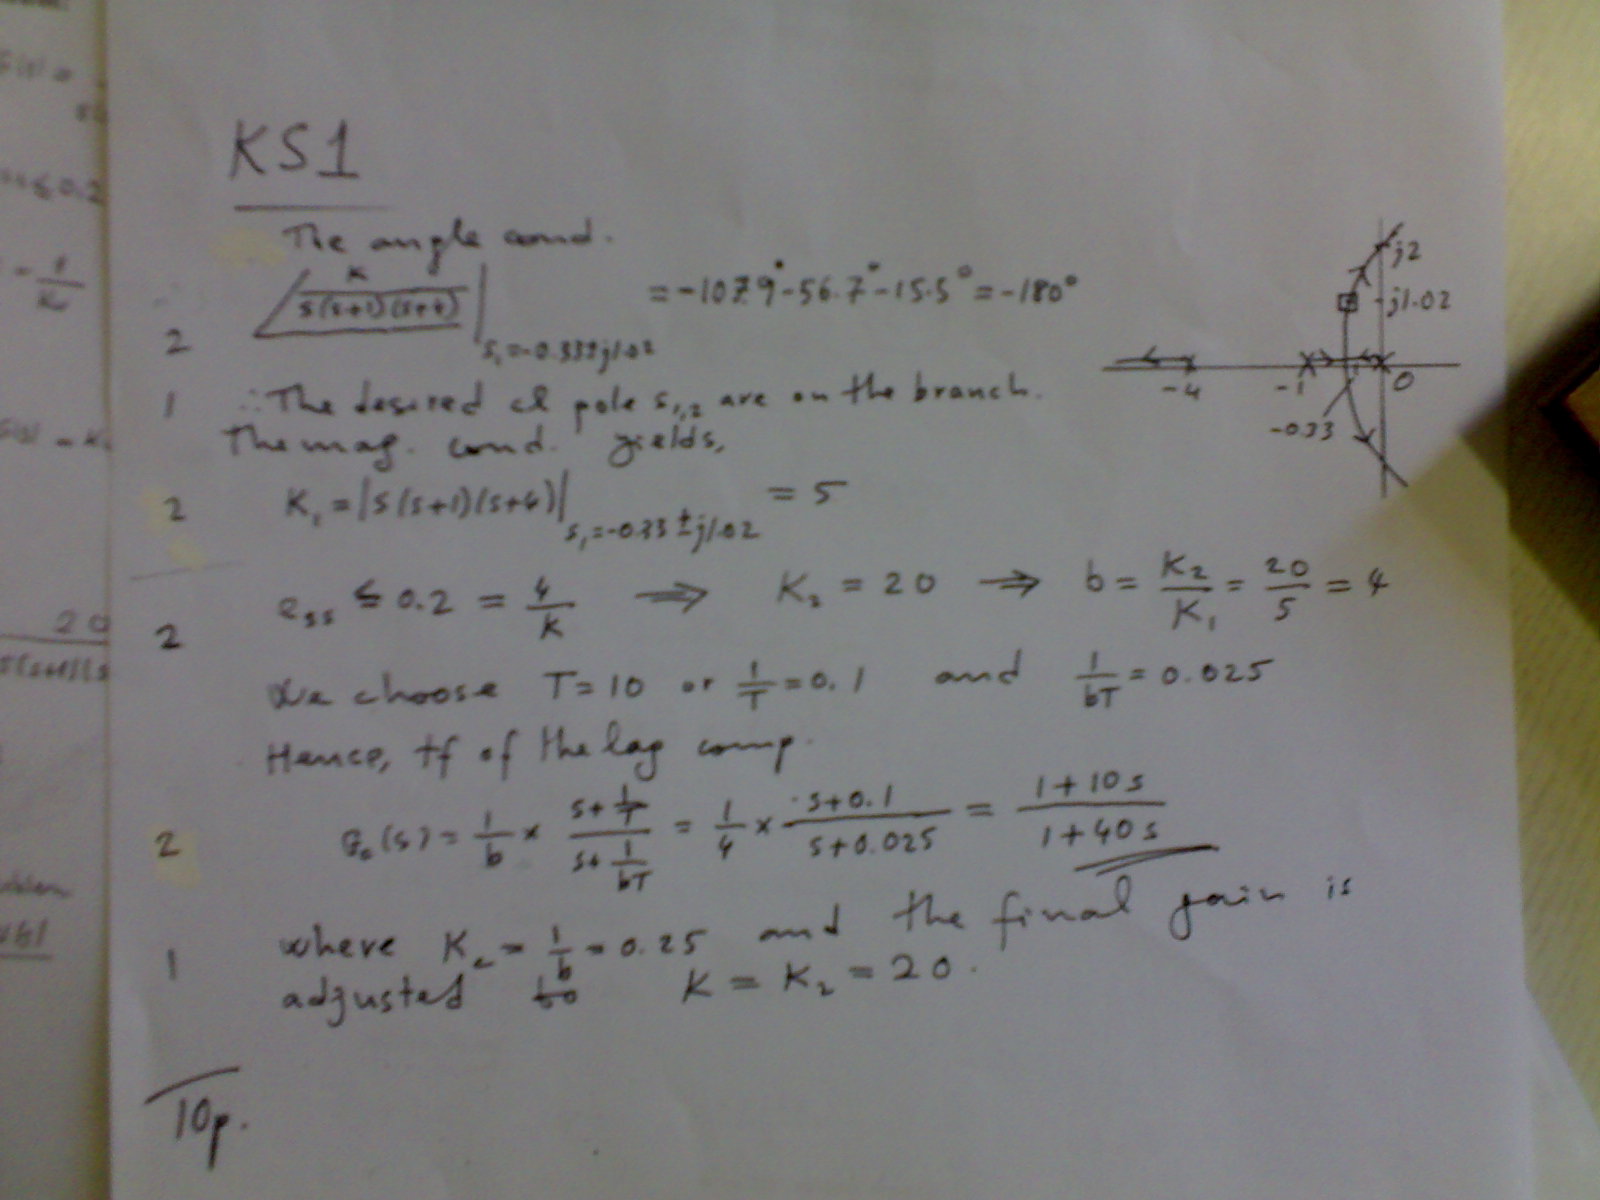 KS1
The angle cond.
K / s(s+1)(s+4) | s₁=-0.33±j1.02 = -107.9°-56.7°-15.5° = -180°
2
1 ∴ The desired cl pole s₁,₂ are on the branch.
The mag. cond. yields,
2 K₁ = |s(s+1)(s+4)| s₁=-0.33±j1.02 = 5
2 ess ≤ 0.2 = 4/K ⇒ K₂ = 20 ⇒ b = K₂/K₁ = 20/5 = 4
We choose T=10 or 1/T = 0.1 and 1/bT = 0.025
Hence, tf of the lag comp.
2 Gc(s) = 1/b × (s+1/T)/(s+1/bT) = 1/4 × (s+0.1)/(s+0.025) = (1+10s)/(1+40s)
where Kc = 1/b = 0.25 and the final gain is
1 adjusted to K = K₂ = 20.
10p.
j2
j1.02
-4 -1 0
-0.33
20